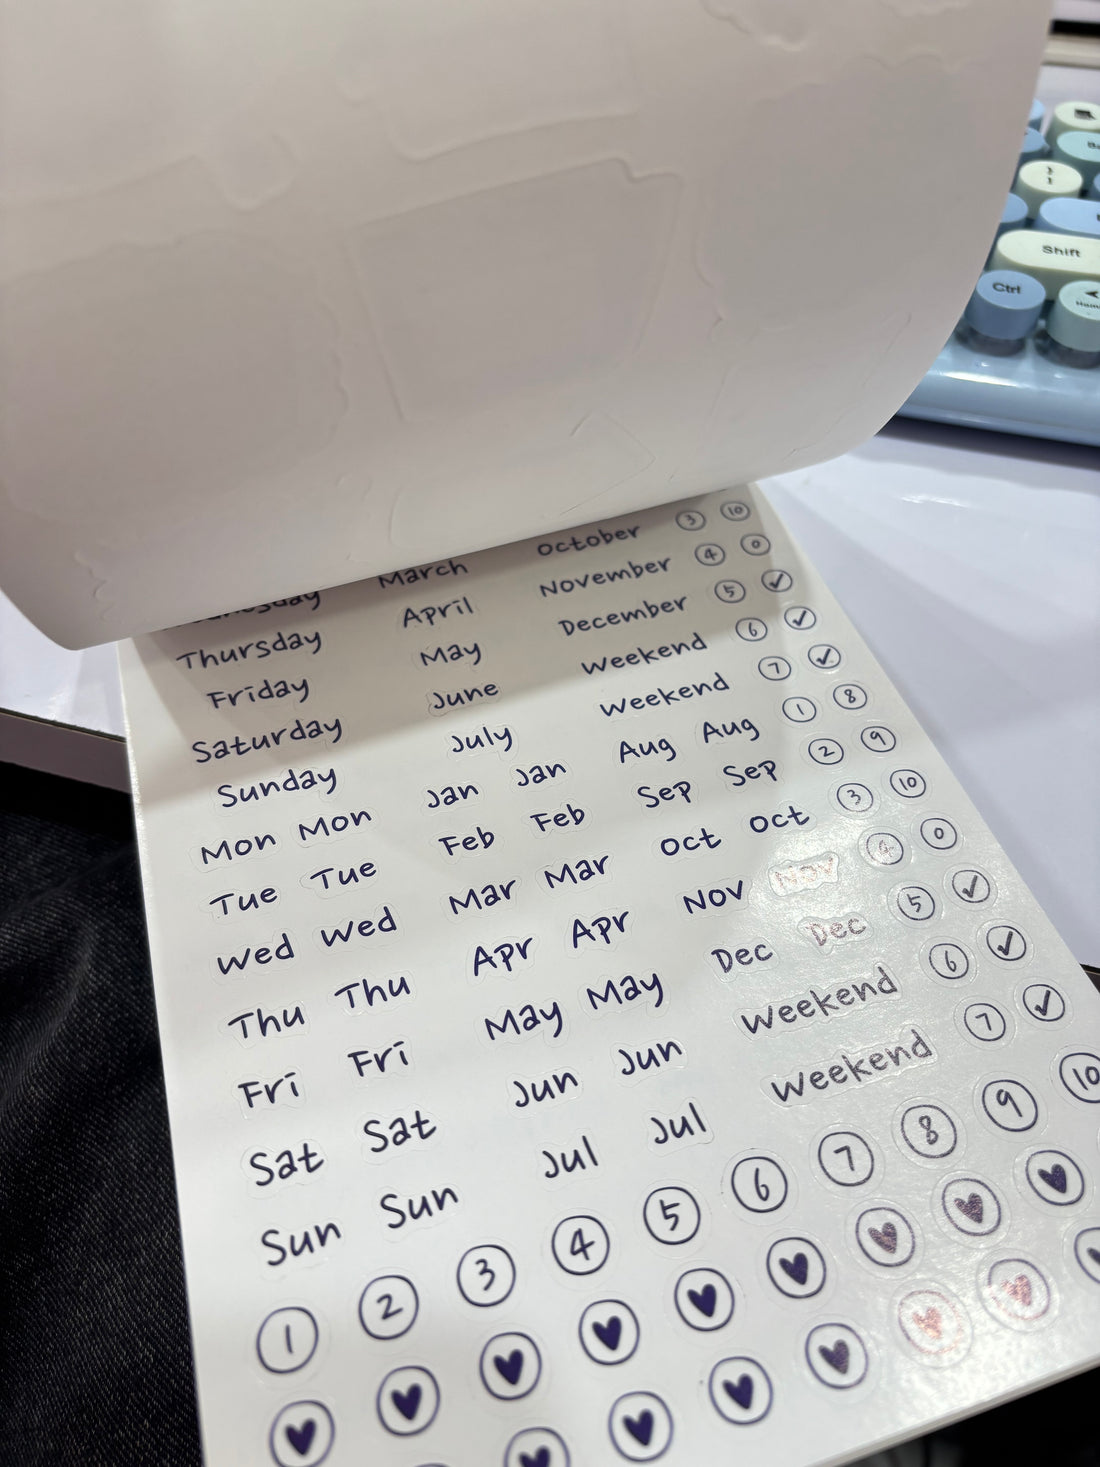 Shift
Ctrl
October 3 10
March November 4 0
Thursday April December 5 ✓
Friday May Weekend 6 ✓
Saturday June Weekend 7 ✓
Sunday July Aug Aug 1 8
Mon Mon Jan Jan Sep Sep 2 9
Tue Tue Feb Feb Oct Oct 3 10
Wed Wed Mar Mar Nov Nov 4 0
Thu Thu Apr Apr Dec Dec 5 ✓
Fri Fri May May Weekend 6 ✓
Sat Sat Jun Jun Weekend 7 ✓
Sun Sun Jul Jul
1 2 3 4 5 6 7 8 9 10